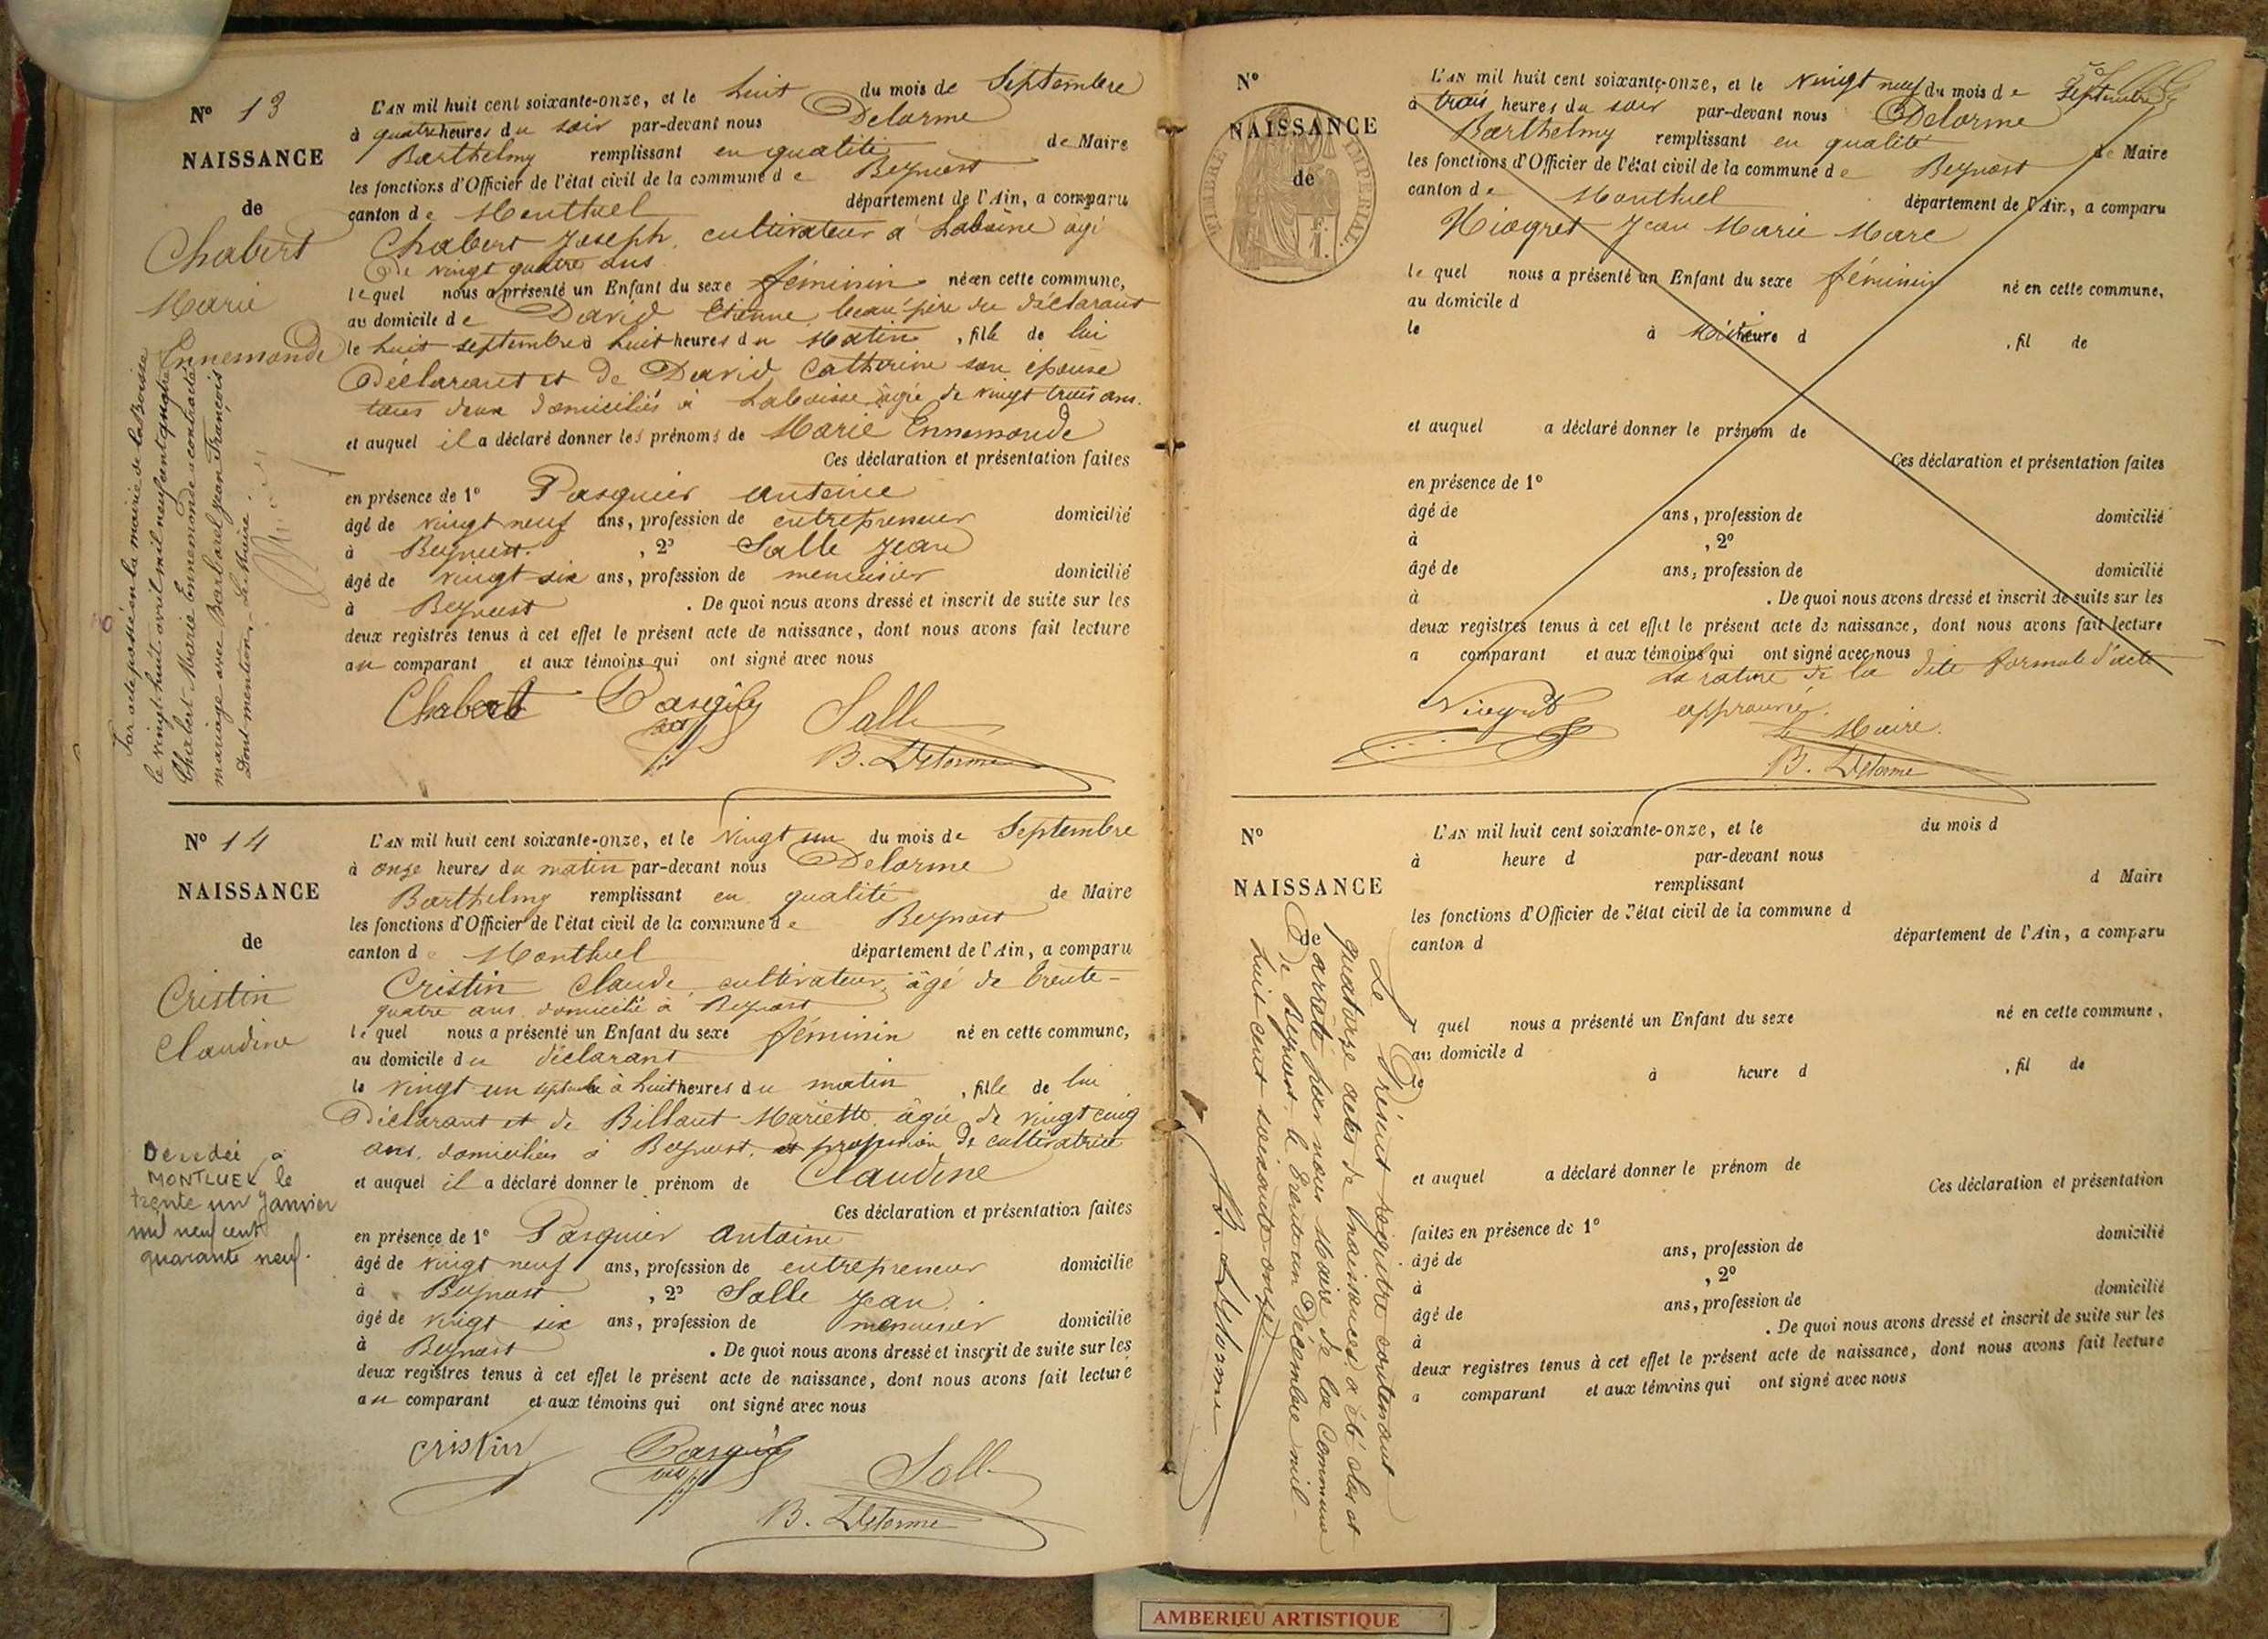 N° 13
NAISSANCE
de
Chabert
Marie
Ennemonde
Par acte passé en la mairie de la Boisse
le vingt huit avril mil neuf cent quatre
Chabert Marie Ennemonde a contracté
mariage avec Barbarel Jean François
Dont mention
L'AN mil huit cent soixante-onze, et le huit du mois de Septembre
à quatre heures du soir par-devant nous Delorme
Barthelmy remplissant en qualité de Maire
les fonctions d'Officier de l'état civil de la commune de Beynost
canton de Montluel département de l'Ain, a comparu
Chabert Joseph, cultivateur à âgé
De vingt quatre ans
lequel nous a présenté un Enfant du sexe féminin né en cette commune,
au domicile de David Etienne beau père du déclarant
le huit septembre à huit heures du Matin, fille de lui
Déclarant et de David Catherine son épouse
tous deux domiciliés à Laboisse âgée de vingt trois ans.
et auquel il a déclaré donner les prénoms de Marie Ennemonde
Ces déclaration et présentation faites
en présence de 1° Pasquier antoine
âgé de vingt neuf ans, profession de entrepreneur domicilié
à Beynost, 2° Salle Jean
âgé de vingt six ans, profession de menuisier domicilié
à Beynost. De quoi nous avons dressé et inscrit de suite sur les
deux registres tenus à cet effet le présent acte de naissance, dont nous avons fait lecture
au comparant et aux témoins qui ont signé avec nous
Chabert Salle
B. Delorme
N° 14
NAISSANCE
de
Cristin
Claudine
Decedée à
MONTLUEL le
trente un Janvier
mil neuf cent
quarante neuf.
L'AN mil huit cent soixante-onze, et le vingt un du mois de Septembre
à onze heures du matin par-devant nous Delorme
Barthelmy remplissant en qualité de Maire
les fonctions d'Officier de l'état civil de la commune de Beynost
canton de Montluel département de l'Ain, a comparu
Cristin Claude, cultivateur, âgé de trente-
quatre ans, domicilié à Beynost
lequel nous a présenté un Enfant du sexe féminin né en cette commune,
au domicile du déclarant
le vingt un septembre à huit heures du matin, fille de lui
Déclarant et de Billaut Mariette âgée de vingt cinq
ans, domiciliés à Beynost, et profession de cultivatrice
et auquel il a déclaré donner le prénom de Claudine
Ces déclaration et présentation faites
en présence de 1° Pasquier antoine
âgé de vingt neuf ans, profession de entrepreneur domicilié
à Beynost, 2° Salle Jean
âgé de vingt six ans, profession de menuisier domicilié
à Beynost. De quoi nous avons dressé et inscrit de suite sur les
deux registres tenus à cet effet le présent acte de naissance, dont nous avons fait lecture
au comparant et aux témoins qui ont signé avec nous
cristin Salle
B. Delorme
N°
NAISSANCE
de
TIMBRE IMPERIAL
L'AN mil huit cent soixante-onze, et le vingt neuf du mois de Septembre
à trois heures du soir par-devant nous Delorme
Barthelmy remplissant en qualité de Maire
les fonctions d'Officier de l'état civil de la commune de Beynost
canton de Montluel département de l'Ain, a comparu
Niogret Jean Marie Marc
lequel nous a présenté un Enfant du sexe féminin né en cette commune,
au domicile d
le à heure d, fil de
et auquel a déclaré donner le prénom de
Ces déclaration et présentation faites
en présence de 1°
âgé de ans, profession de domicilié
à, 2°
âgé de ans, profession de domicilié
à. De quoi nous avons dressé et inscrit de suite sur les
deux registres tenus à cet effet le présent acte de naissance, dont nous avons fait lecture
a comparant et aux témoins qui ont signé avec nous
La rature de la dite formule d'acte
approuvée.
Niogret
Le Maire.
B. Delorme
N°
NAISSANCE
de
Le Présent registre contenant
quatorze actes de naissances a été clos et
arrêté par nous Maire de la Commune
De Beynost le trente un Décembre mil-
huit cent soixante onze.
B. Delorme
L'AN mil huit cent soixante-onze, et le du mois d
à heure d par-devant nous
remplissant d Maire
les fonctions d'Officier de l'état civil de la commune d
canton d département de l'Ain, a comparu
quel nous a présenté un Enfant du sexe né en cette commune,
au domicile d
le à heure d, fil de
et auquel a déclaré donner le prénom de
Ces déclaration et présentation
faites en présence de 1° domicilié
âgé de ans, profession de
à, 2° domicilié
âgé de ans, profession de
à. De quoi nous avons dressé et inscrit de suite sur les
deux registres tenus à cet effet le présent acte de naissance, dont nous avons fait lecture
a comparant et aux témoins qui ont signé avec nous
AMBERIEU ARTISTIQUE